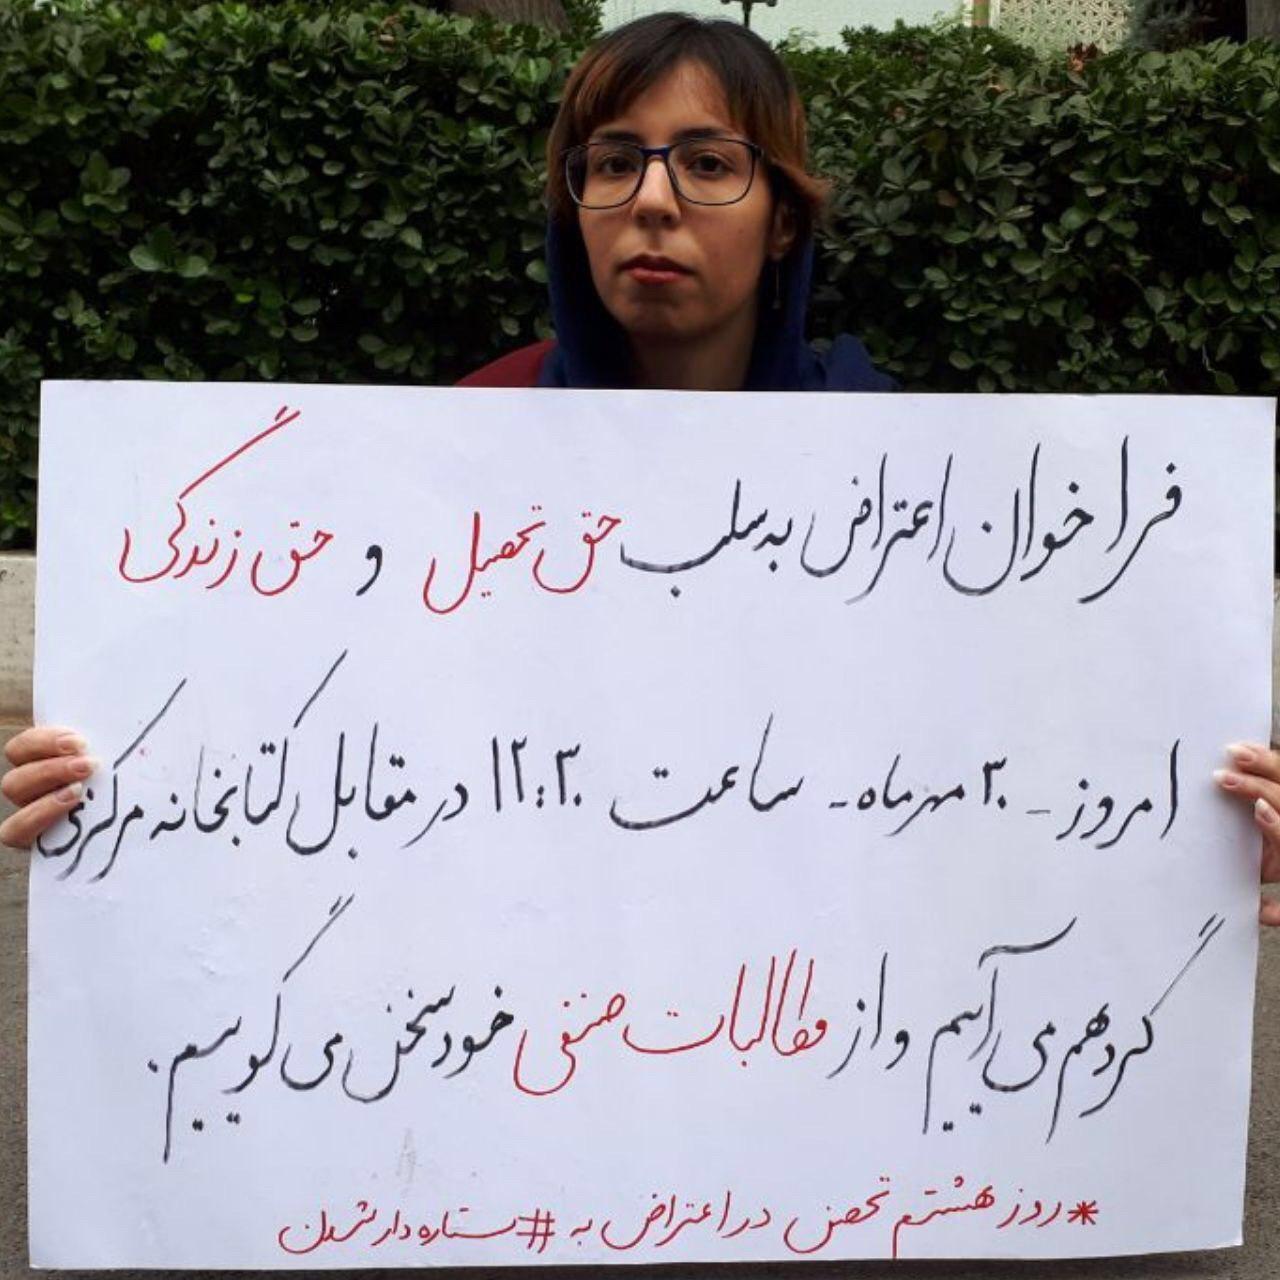 فراخوان اعتراض به سلب حق تحصیل و حق زندگی
امروز - ۳۰ مهرماه - ساعت ۱۲:۳۰ در مقابل کتابخانه مرکزی
گردهم می آییم و از مطالبات صنفی خود سخن می گوییم.
*روز هشتم تحصن در اعتراض به #ستاره دار شدن